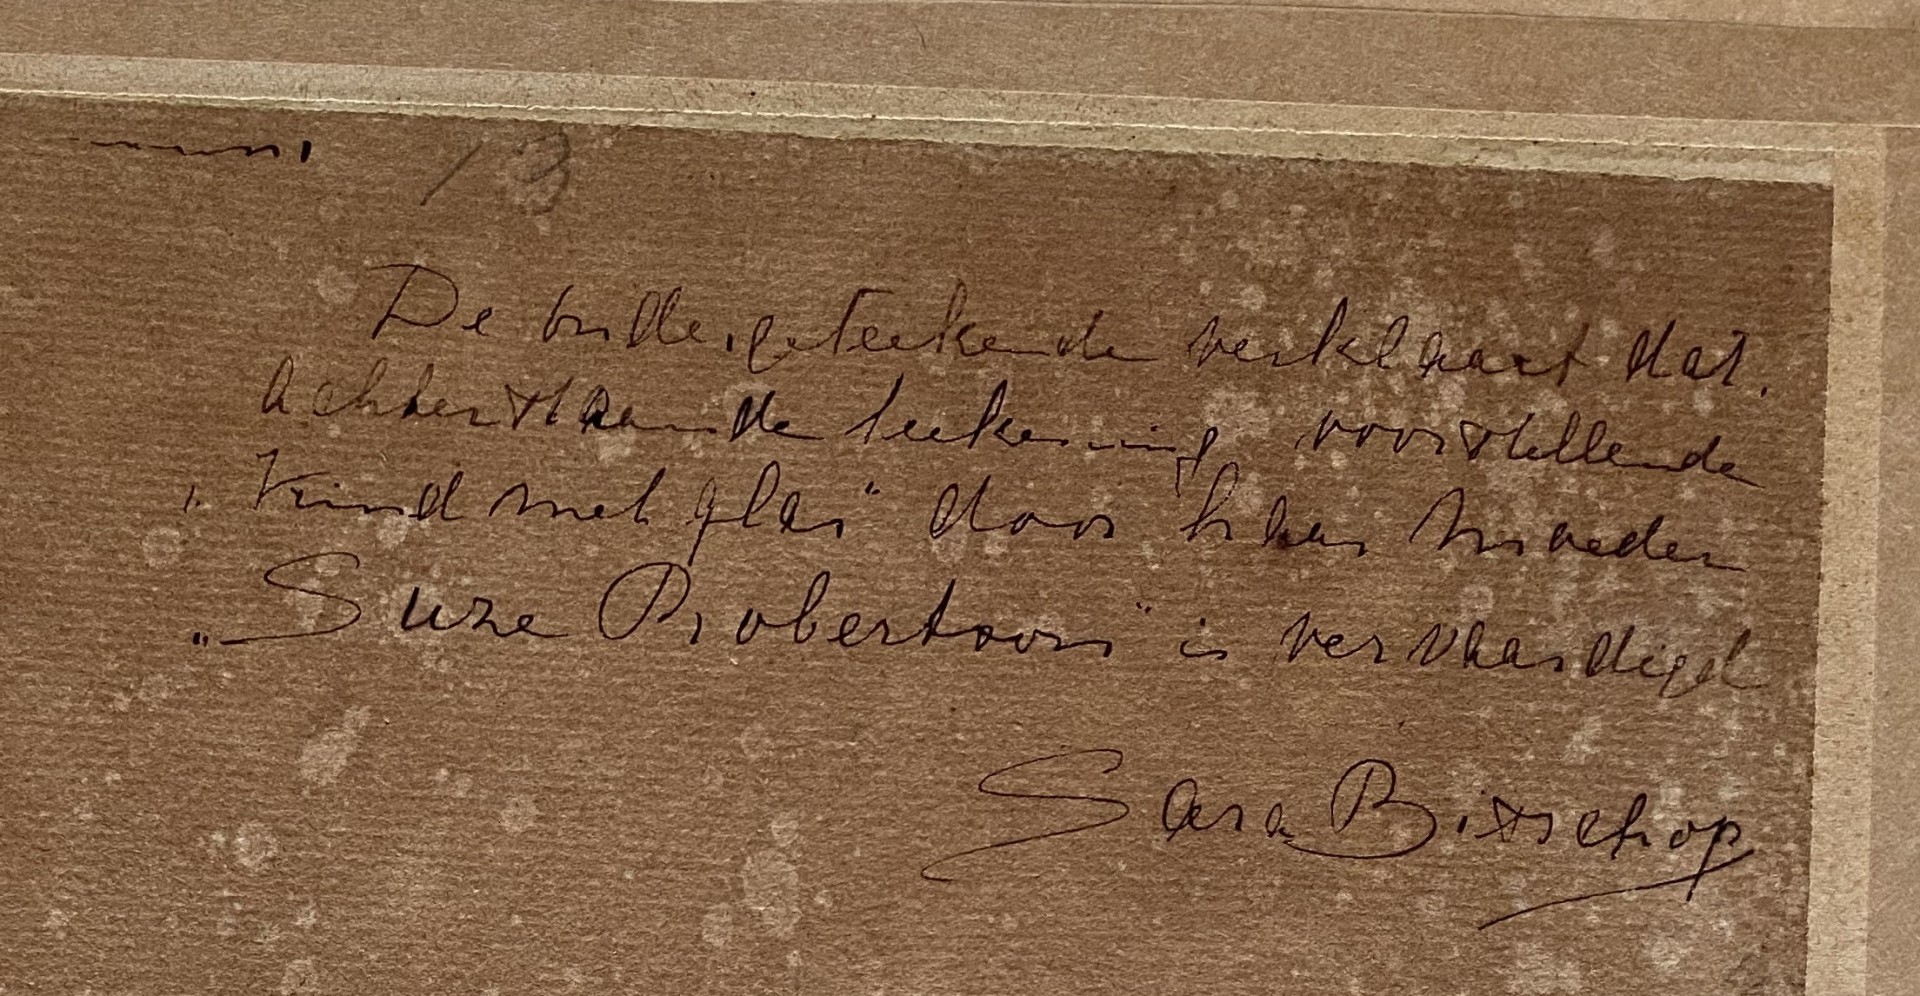 13
De ondergeteekende verklaart dat.
achterstaande teekening voorstellende
„Kind met glas" door haar moeder
„Suze Robertson" is vervaardigd
Sara Bisschop